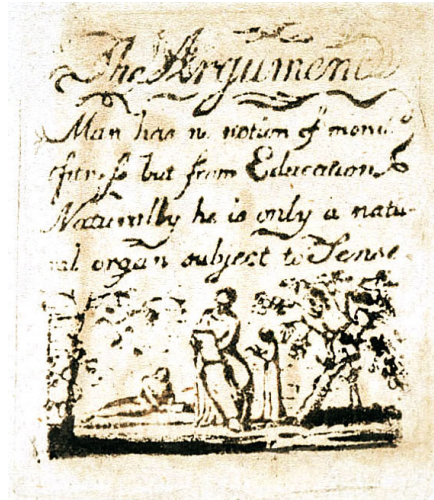 The Argument
Man has no notion of moral
fitness but from Education.
Naturally he is only a natu-
ral organ subject to Sense.